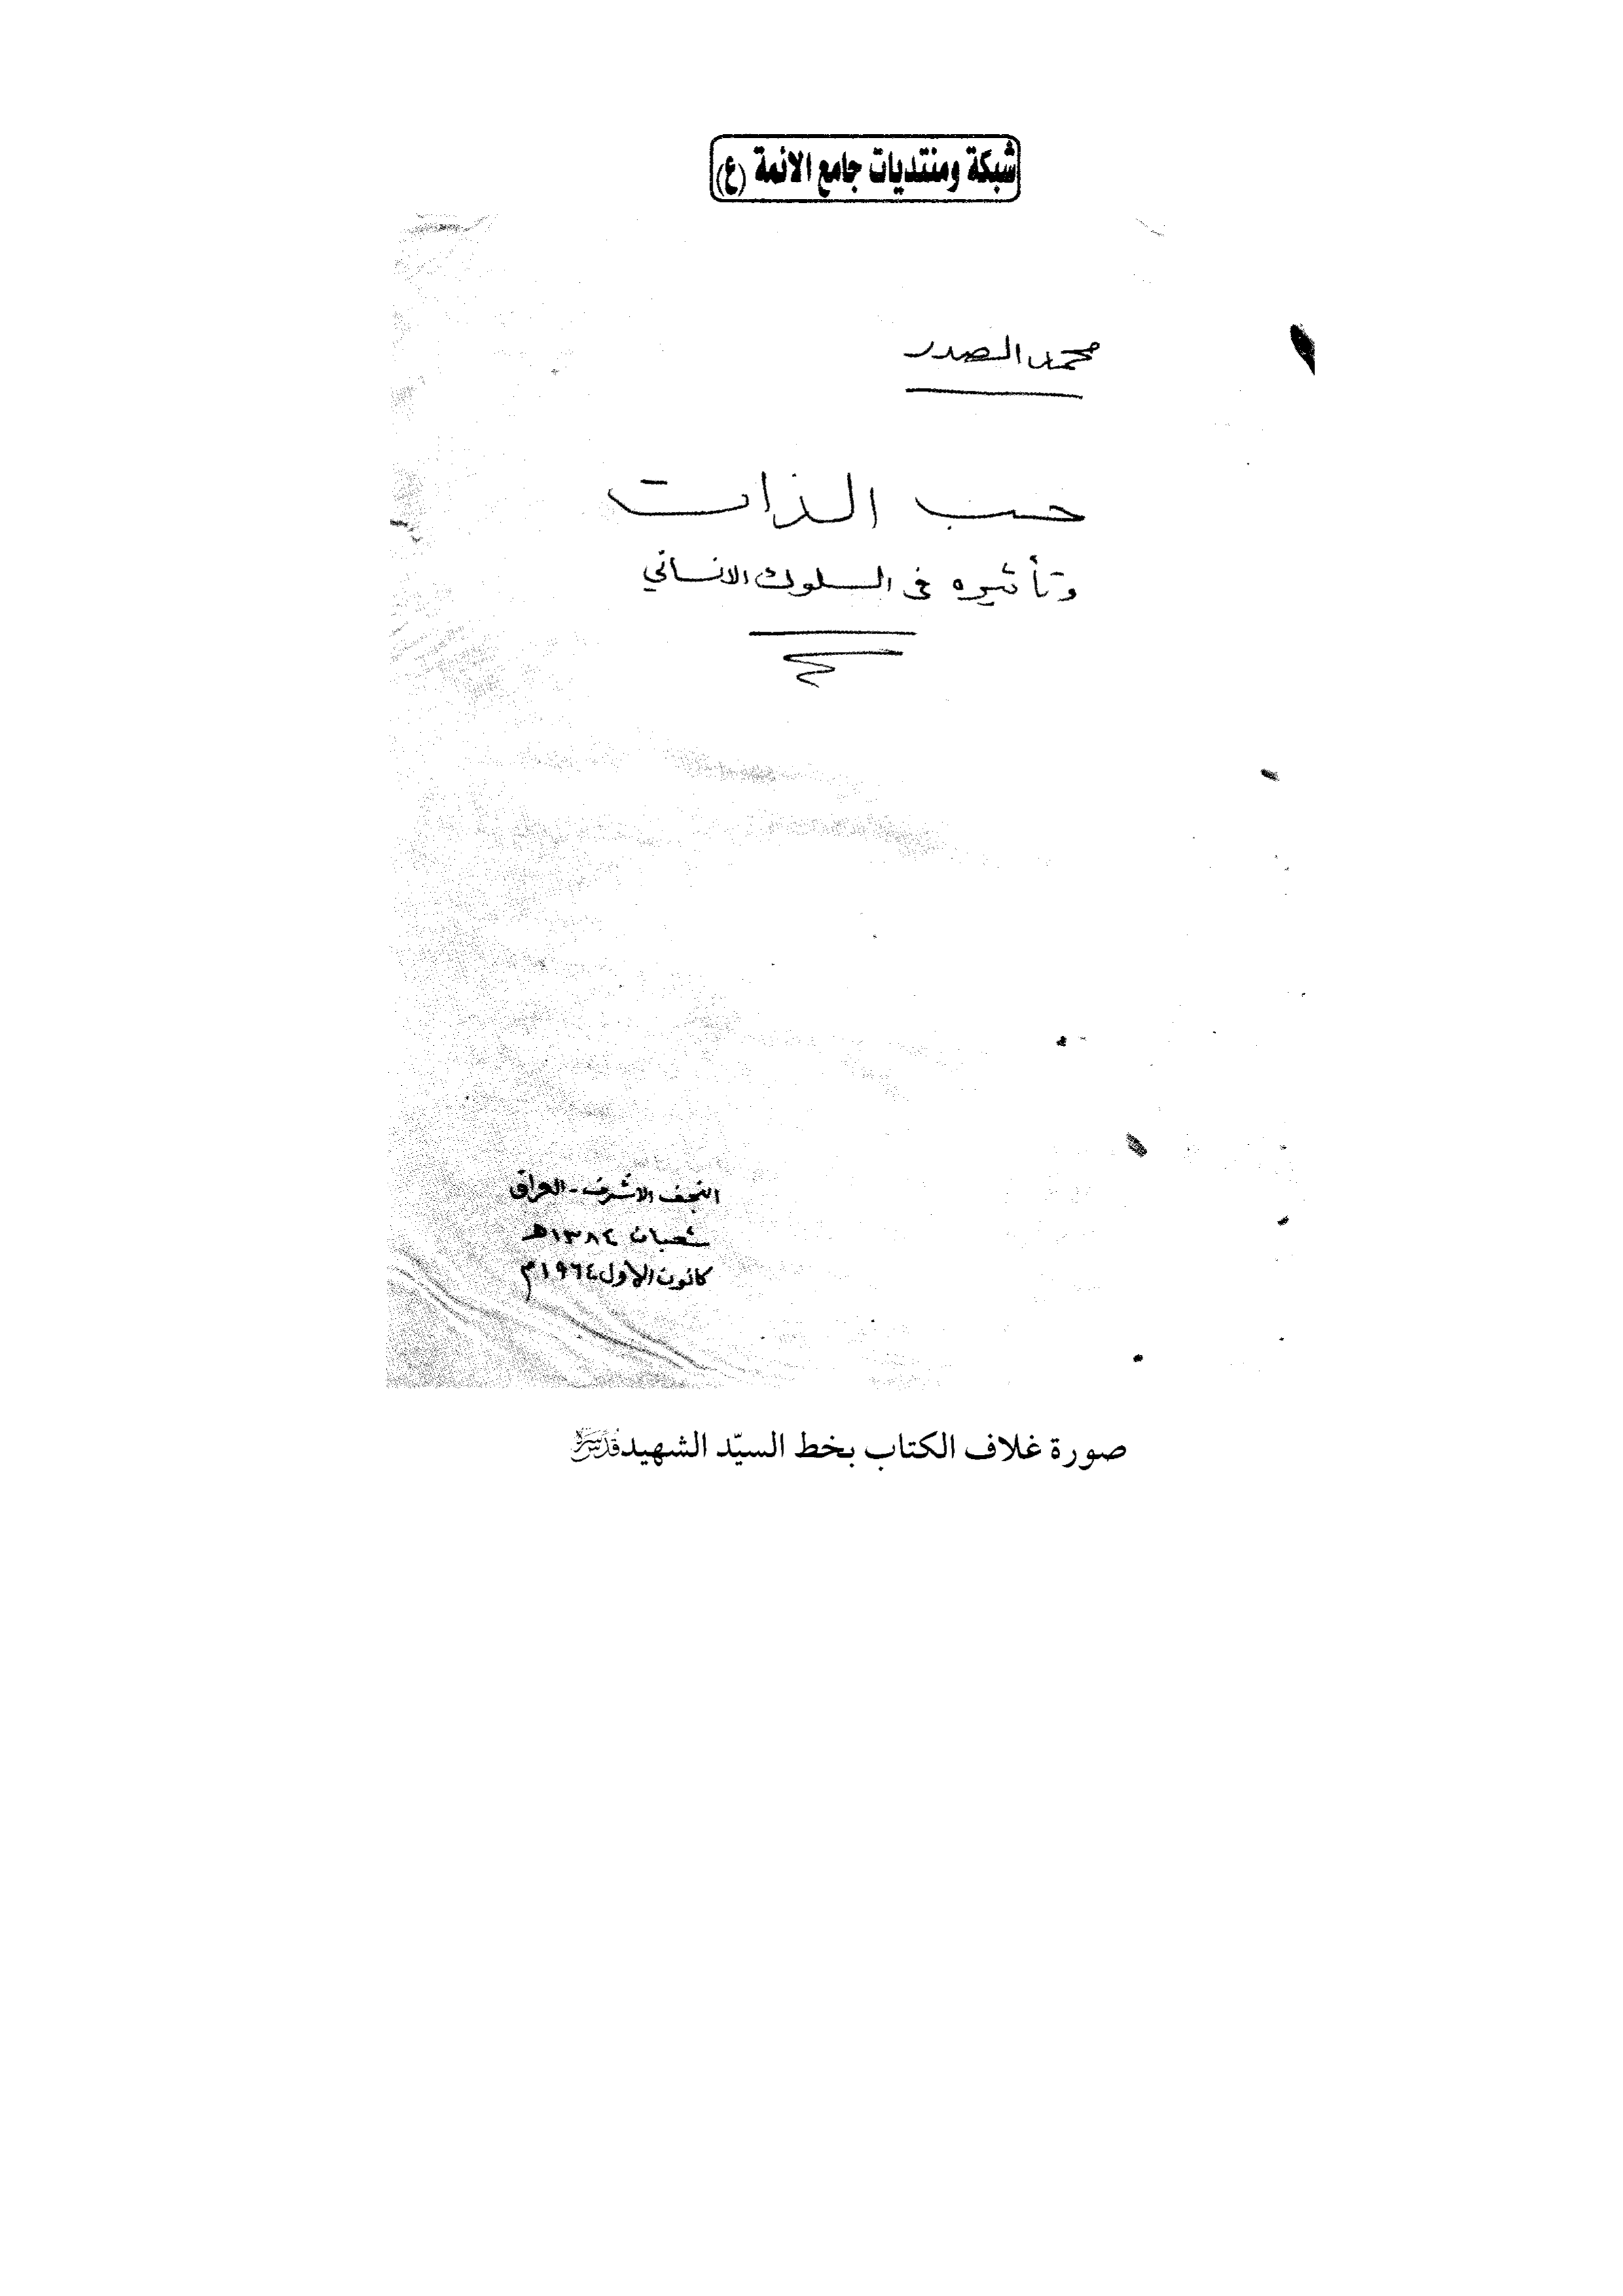 شبكة ومنتديات جامع الائمة (ع)
محمد الصدر
حب الذات
وتأثيره في السلوك الانساني
النجف الاشرف - العراق
شعبان ١٣٨٤هـ
كانون الأول ١٩٦٤م
صورة غلاف الكتاب بخط السيّد الشهيد قدّس سرّه